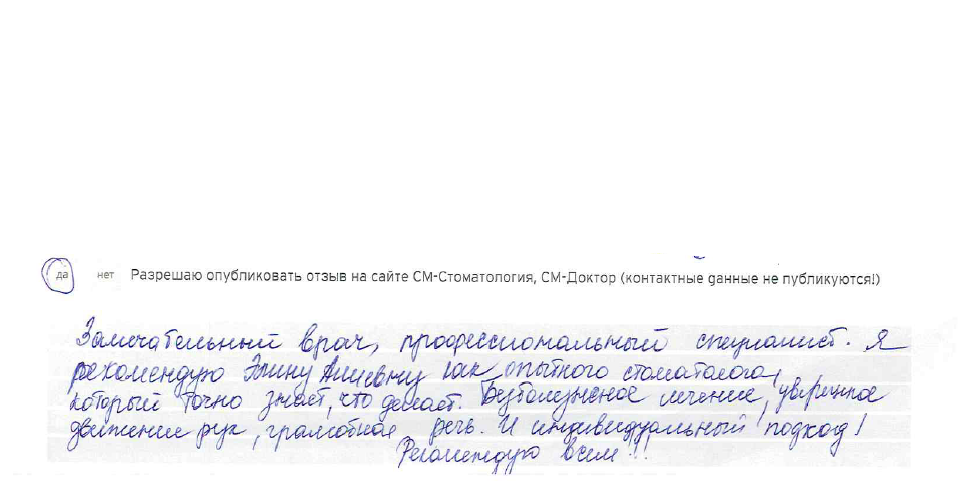 да нет Разрешаю опубликовать отзыв на сайте СМ-Стоматология, СМ-Доктор (контактные данные не публикуются!)
Замечательный врач, профессиональный специалист. Я
рекомендую как опытного стоматолога,
который точно знает, что делает. Безболезненое лечение, уверенное
движение рук, грамотная речь. И индивидуальный подход!
Рекомендую всем!!!